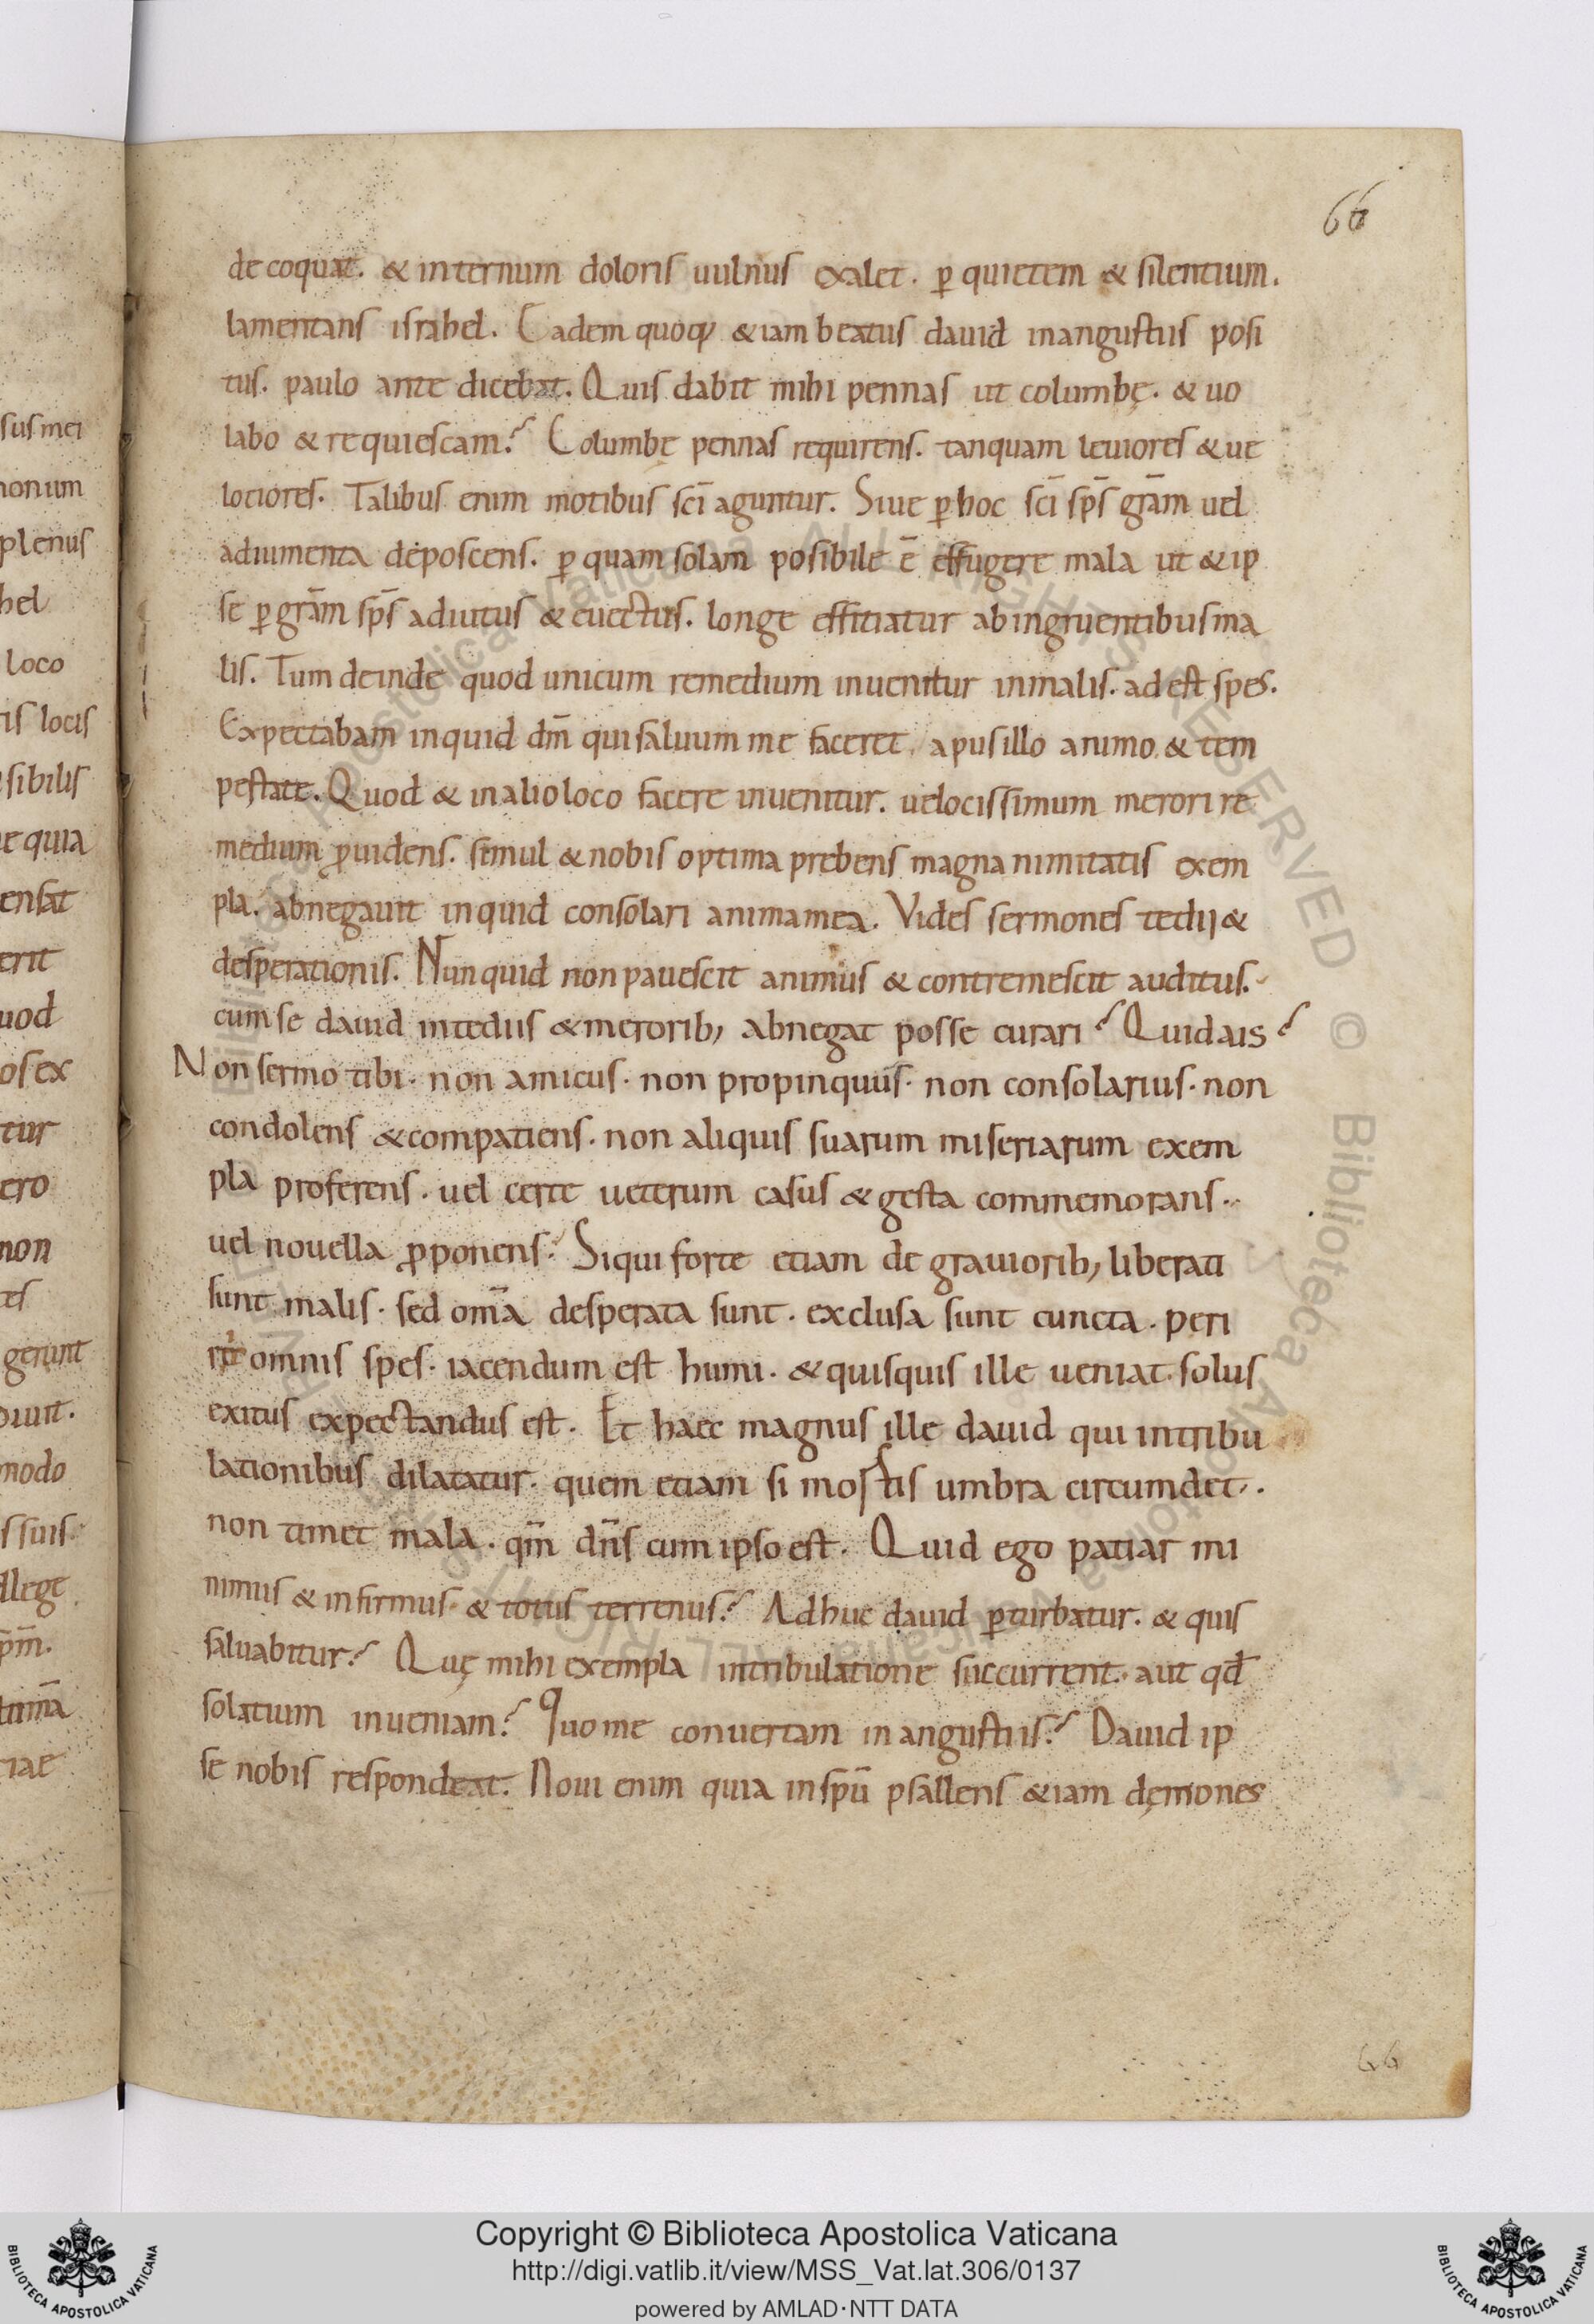 66
de coquat. & internum doloris uulnus exalet. ꝑ quietem & silentium.
lamentans israhel. Eadem quoq; &iam beatus dauid in angustiis posi
tus. paulo ante dicebat. Quis dabit mihi pennas ut columbę. & uo
labo & requiescam? Columbe pennas requirens. tanquam leuiores & ue
lociores. Talibus enim motibus sc̄i aguntur. Siue ꝑ hoc sc̄i sp̄s grām uel
adiumenta deposcens. ꝑ quam solam posibile ē effugere mala ut & ip
se ꝑ grām sp̄s adiutus & euectus. longe effitiatur ab ingruentibus ma
lis. Tum deinde quod unicum remedium inuenitur in malis. ad est spes.
Expectabam inquid dm̄ qui saluum me faceret, a pusillo animo & tem
pestate. Quod & in alio loco facere inuenitur. uelocissimum merori re
medium ꝓuidens. simul & nobis optima prebens magna nimitatis exem
pla. abnegauit inquid consolari anima mea. Vides sermones tedij &
desperationis. Nunquid non pauescit animus & contremescit auditus.
cum se dauid in tediis & merorib; abnegat posse curari? Quid ais?
Non sermo tibi. non amicus. non propinquus. non consolarius. non
condolens & compatiens. non aliquis suarum miseriarum exem
pla proferens. uel certe ueterum casus & gesta commemorans..
uel nouella ꝓponens. Siqui forte etiam de grauiorib; liberati
sunt malis. sed om̄a desperata sunt. exclusa sunt cuncta. peri
rit omnis spes. iacendum est humi. & quisquis ille ueniat. solus
exitus expectandus est. Et haec magnus ille dauid qui in tribu
lationibus dilatatur. quem etiam si mortis umbra circumdet..
non timet mala. qm̄ dn̄s cum ipso est. Quid ego patiar mi
nimus & infirmus. & totus terrenus? Adhuc dauid ꝑturbatur. & quis
saluabitur? Quę mihi exempla in tribulatione succurrent. aut qd̄
solatium inueniam? Quo me conuertam in angustiis? Dauid ip
se nobis respondeat. Noui enim quia in sp̄u psallens &iam dęmones
66
sus mei
plenus
hel
loco
is locis
sibilis
e quia
ensat
erit
uod
os ex
tur
ero
non
gerunt
modo
s suis
Copyright © Biblioteca Apostolica Vaticana
http://digi.vatlib.it/view/MSS_Vat.lat.306/0137
powered by AMLAD·NTT DATA
BIBLIOTECA APOSTOLICA VATICANA
BIBLIOTECA APOSTOLICA VATICANA